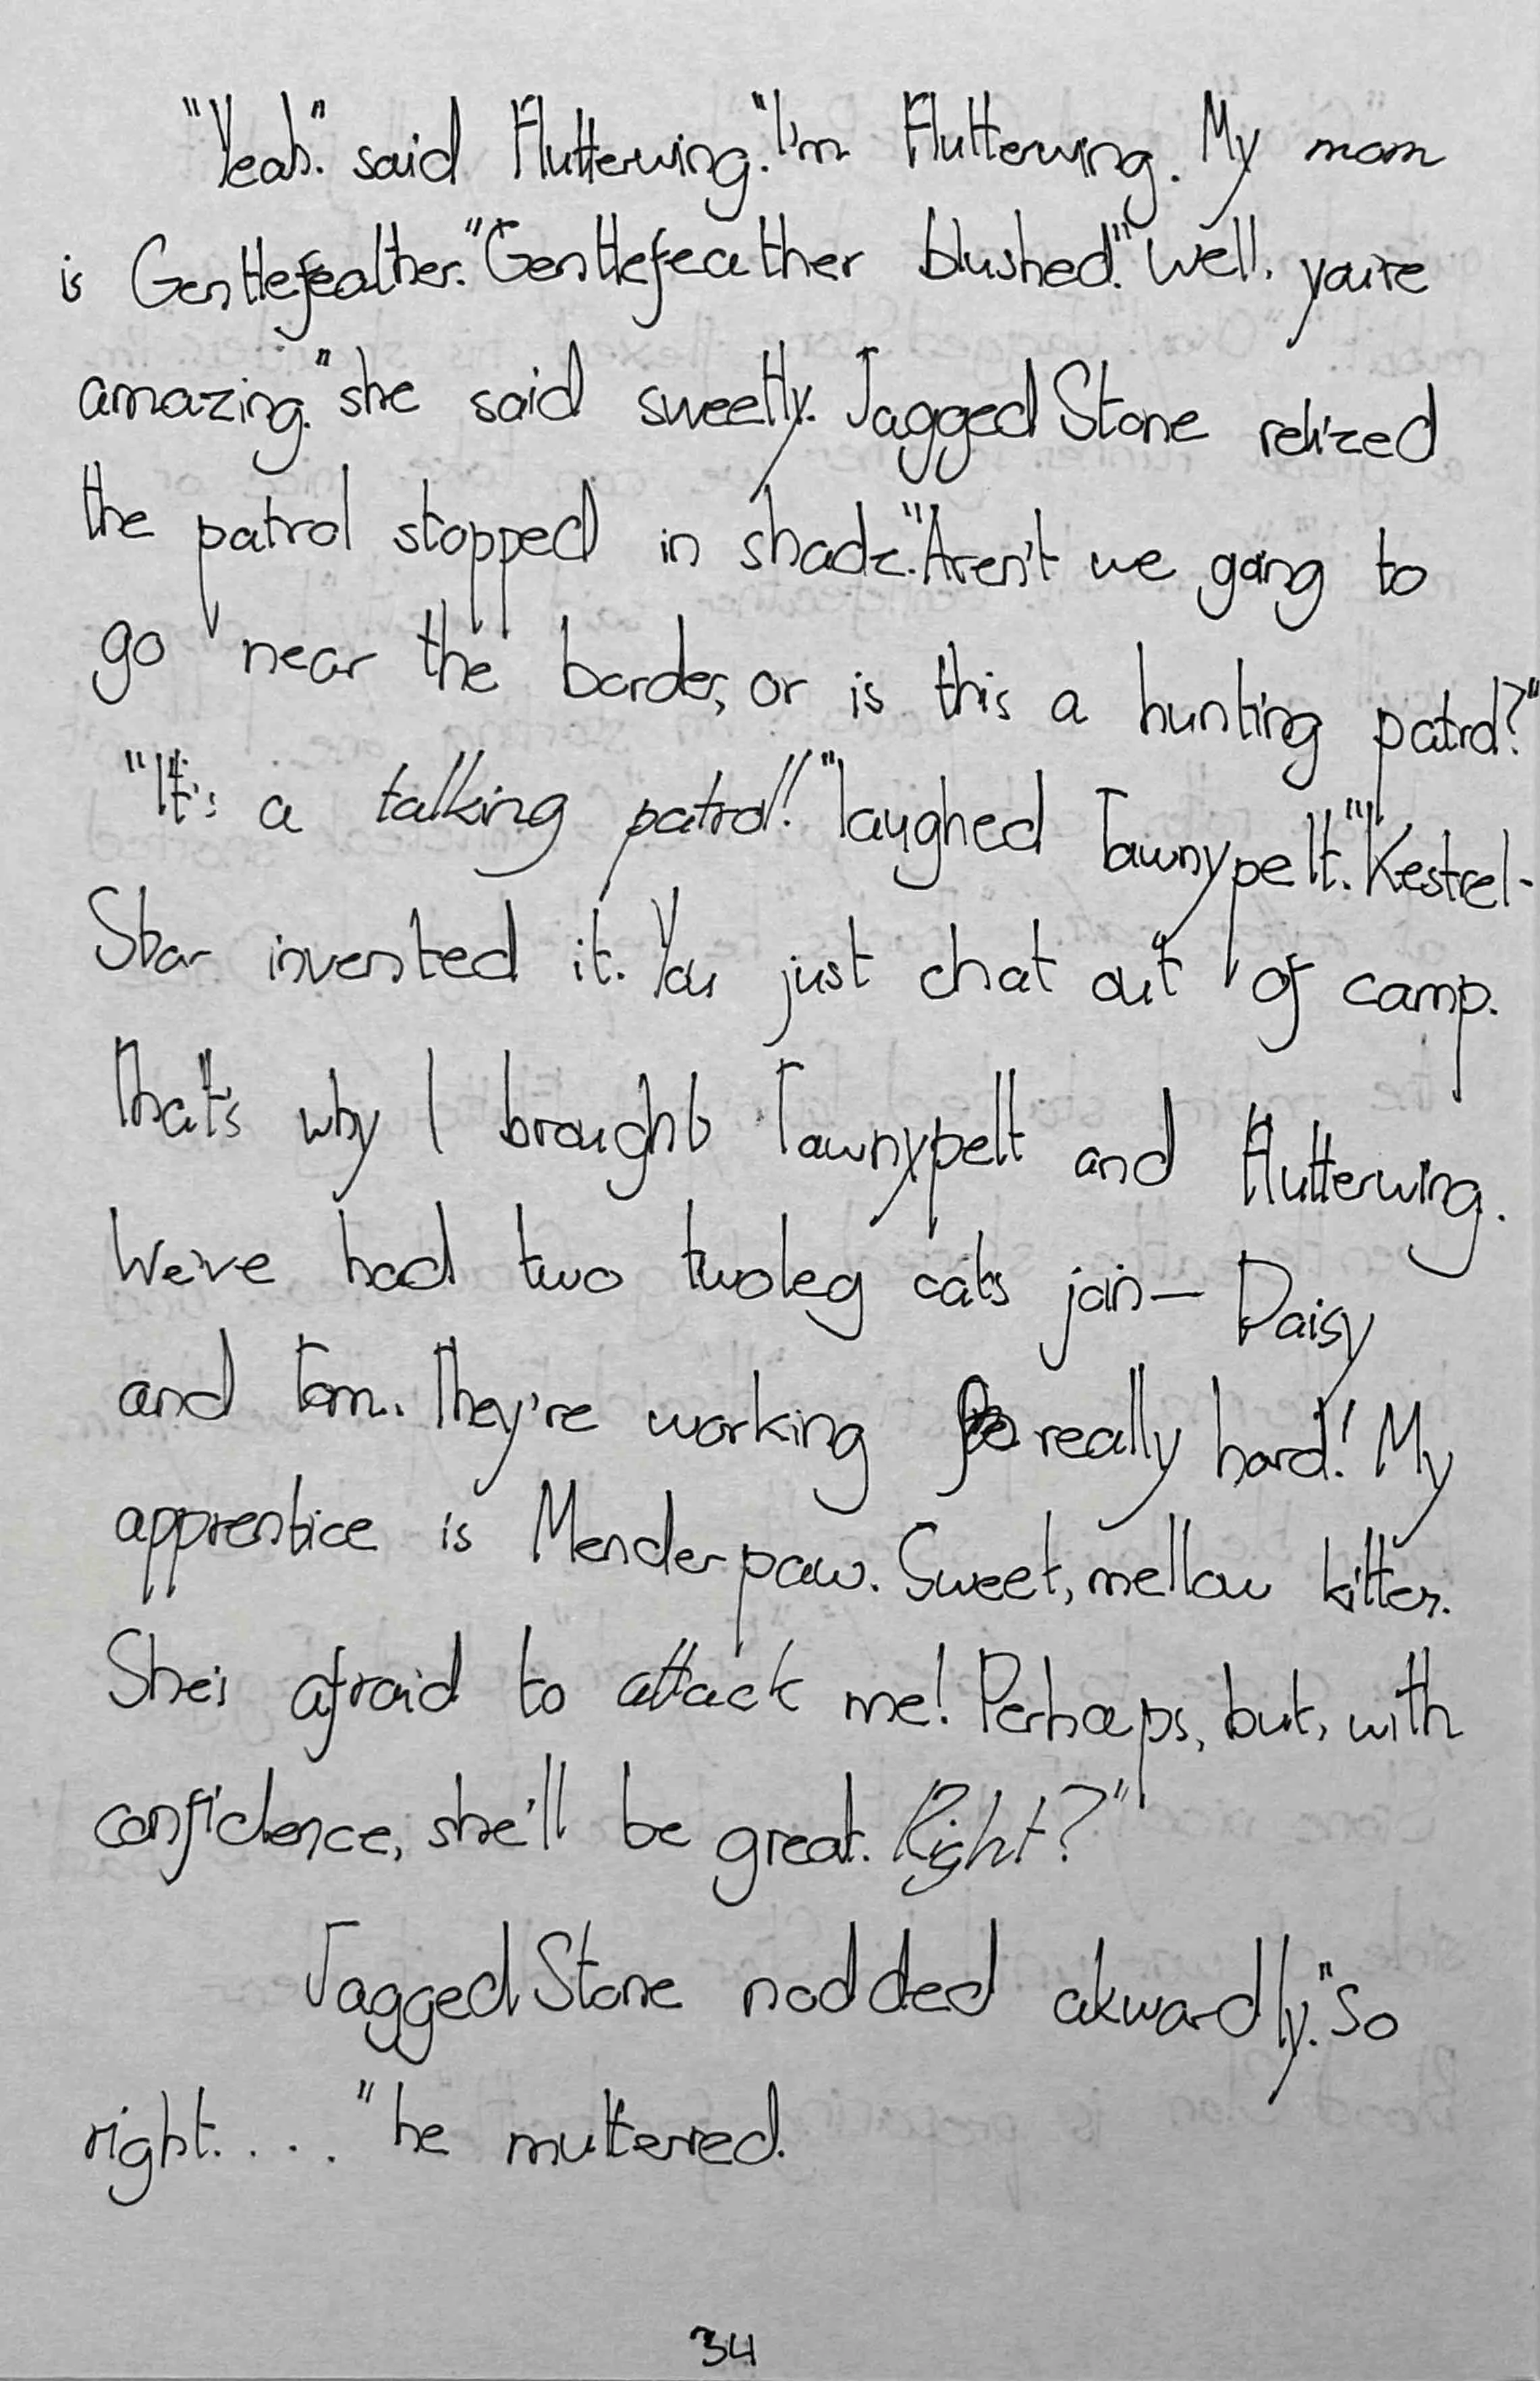 "Yeah." said Flutterwing. "I'm Flutterwing. My mom
is Gentlefeather." Gentlefeather blushed. "Well, you're
amazing." she said sweetly. Jagged Stone relized
the patrol stopped in shade. "Aren't we going to
go near the border, or is this a hunting patrol?"
"It's a talking patrol!" laughed Tawnypelt. "Kestrel-
Star invented it. You just chat out of camp.
That's why I brought Tawnypelt and Flutterwing.
We've had two twoleg cats join— Daisy
and Tom. They're working really hard! My
apprentice is Menderpaw. Sweet, mellow kitten.
She's afraid to attack me! Perhaps, but, with
confidence, she'll be great. Right?"
Jagged Stone nodded akwardly. "So
right. . . ." he muttered.
34